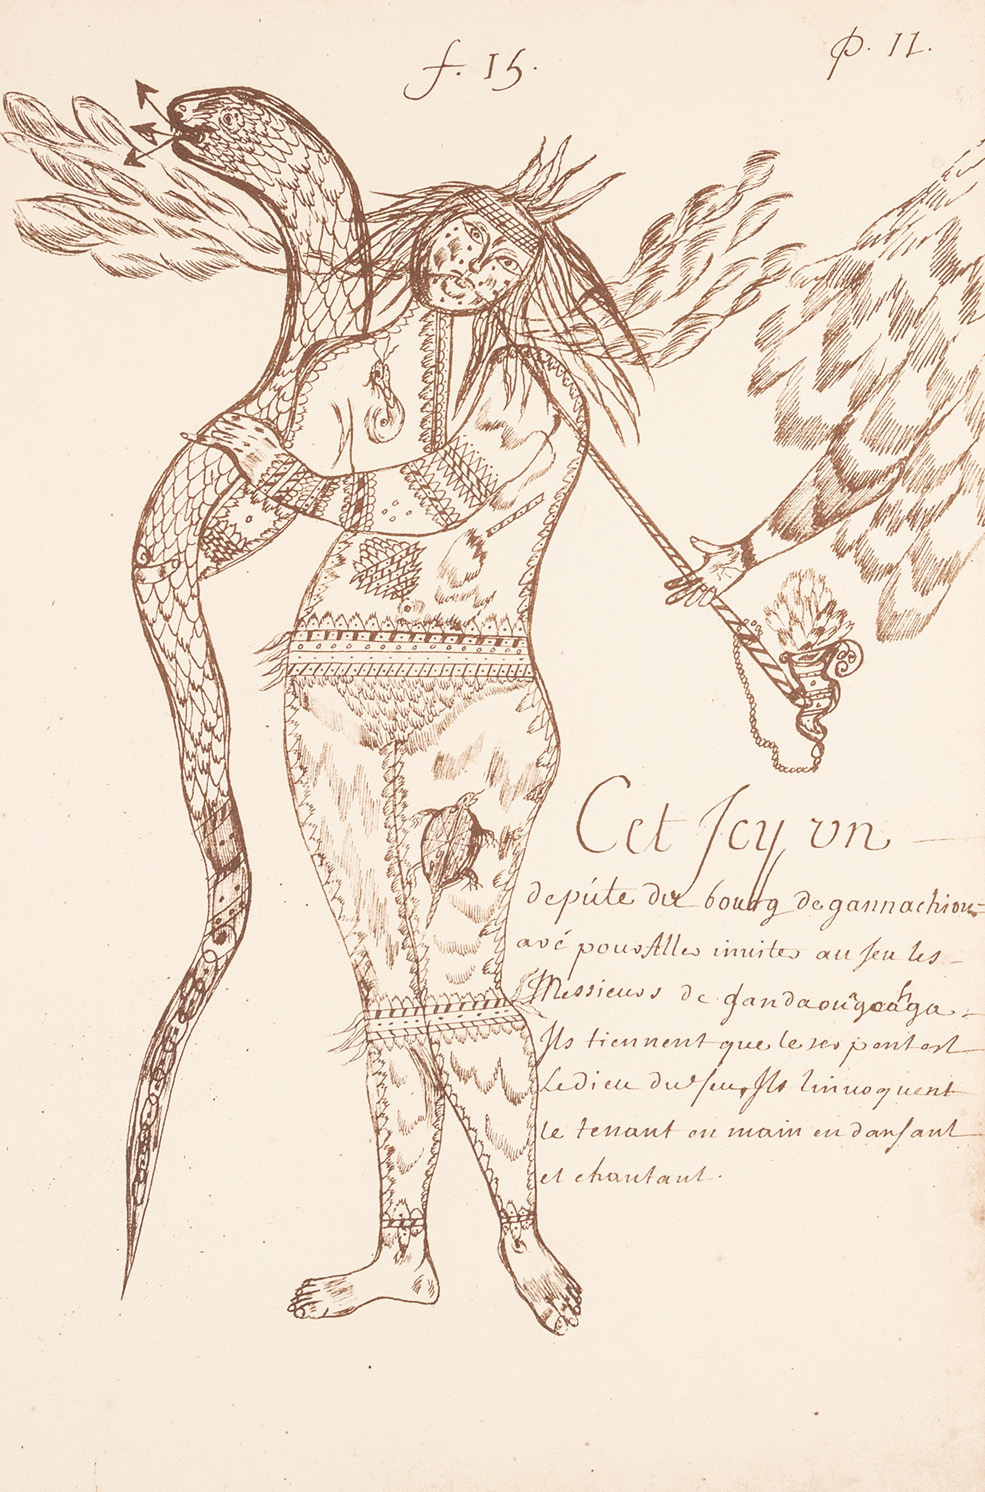 f. 15.
p. 11.
Cet Icy un
depúte du bourg de gannachiou=
avé pour Aller inuiter au Jeu les
Messieurs de gandaouagoahga.
Ils tiennent que le serpent est
Le dieu du feu, Ils linuoquent
le tenant en main en dansant
et chantant.